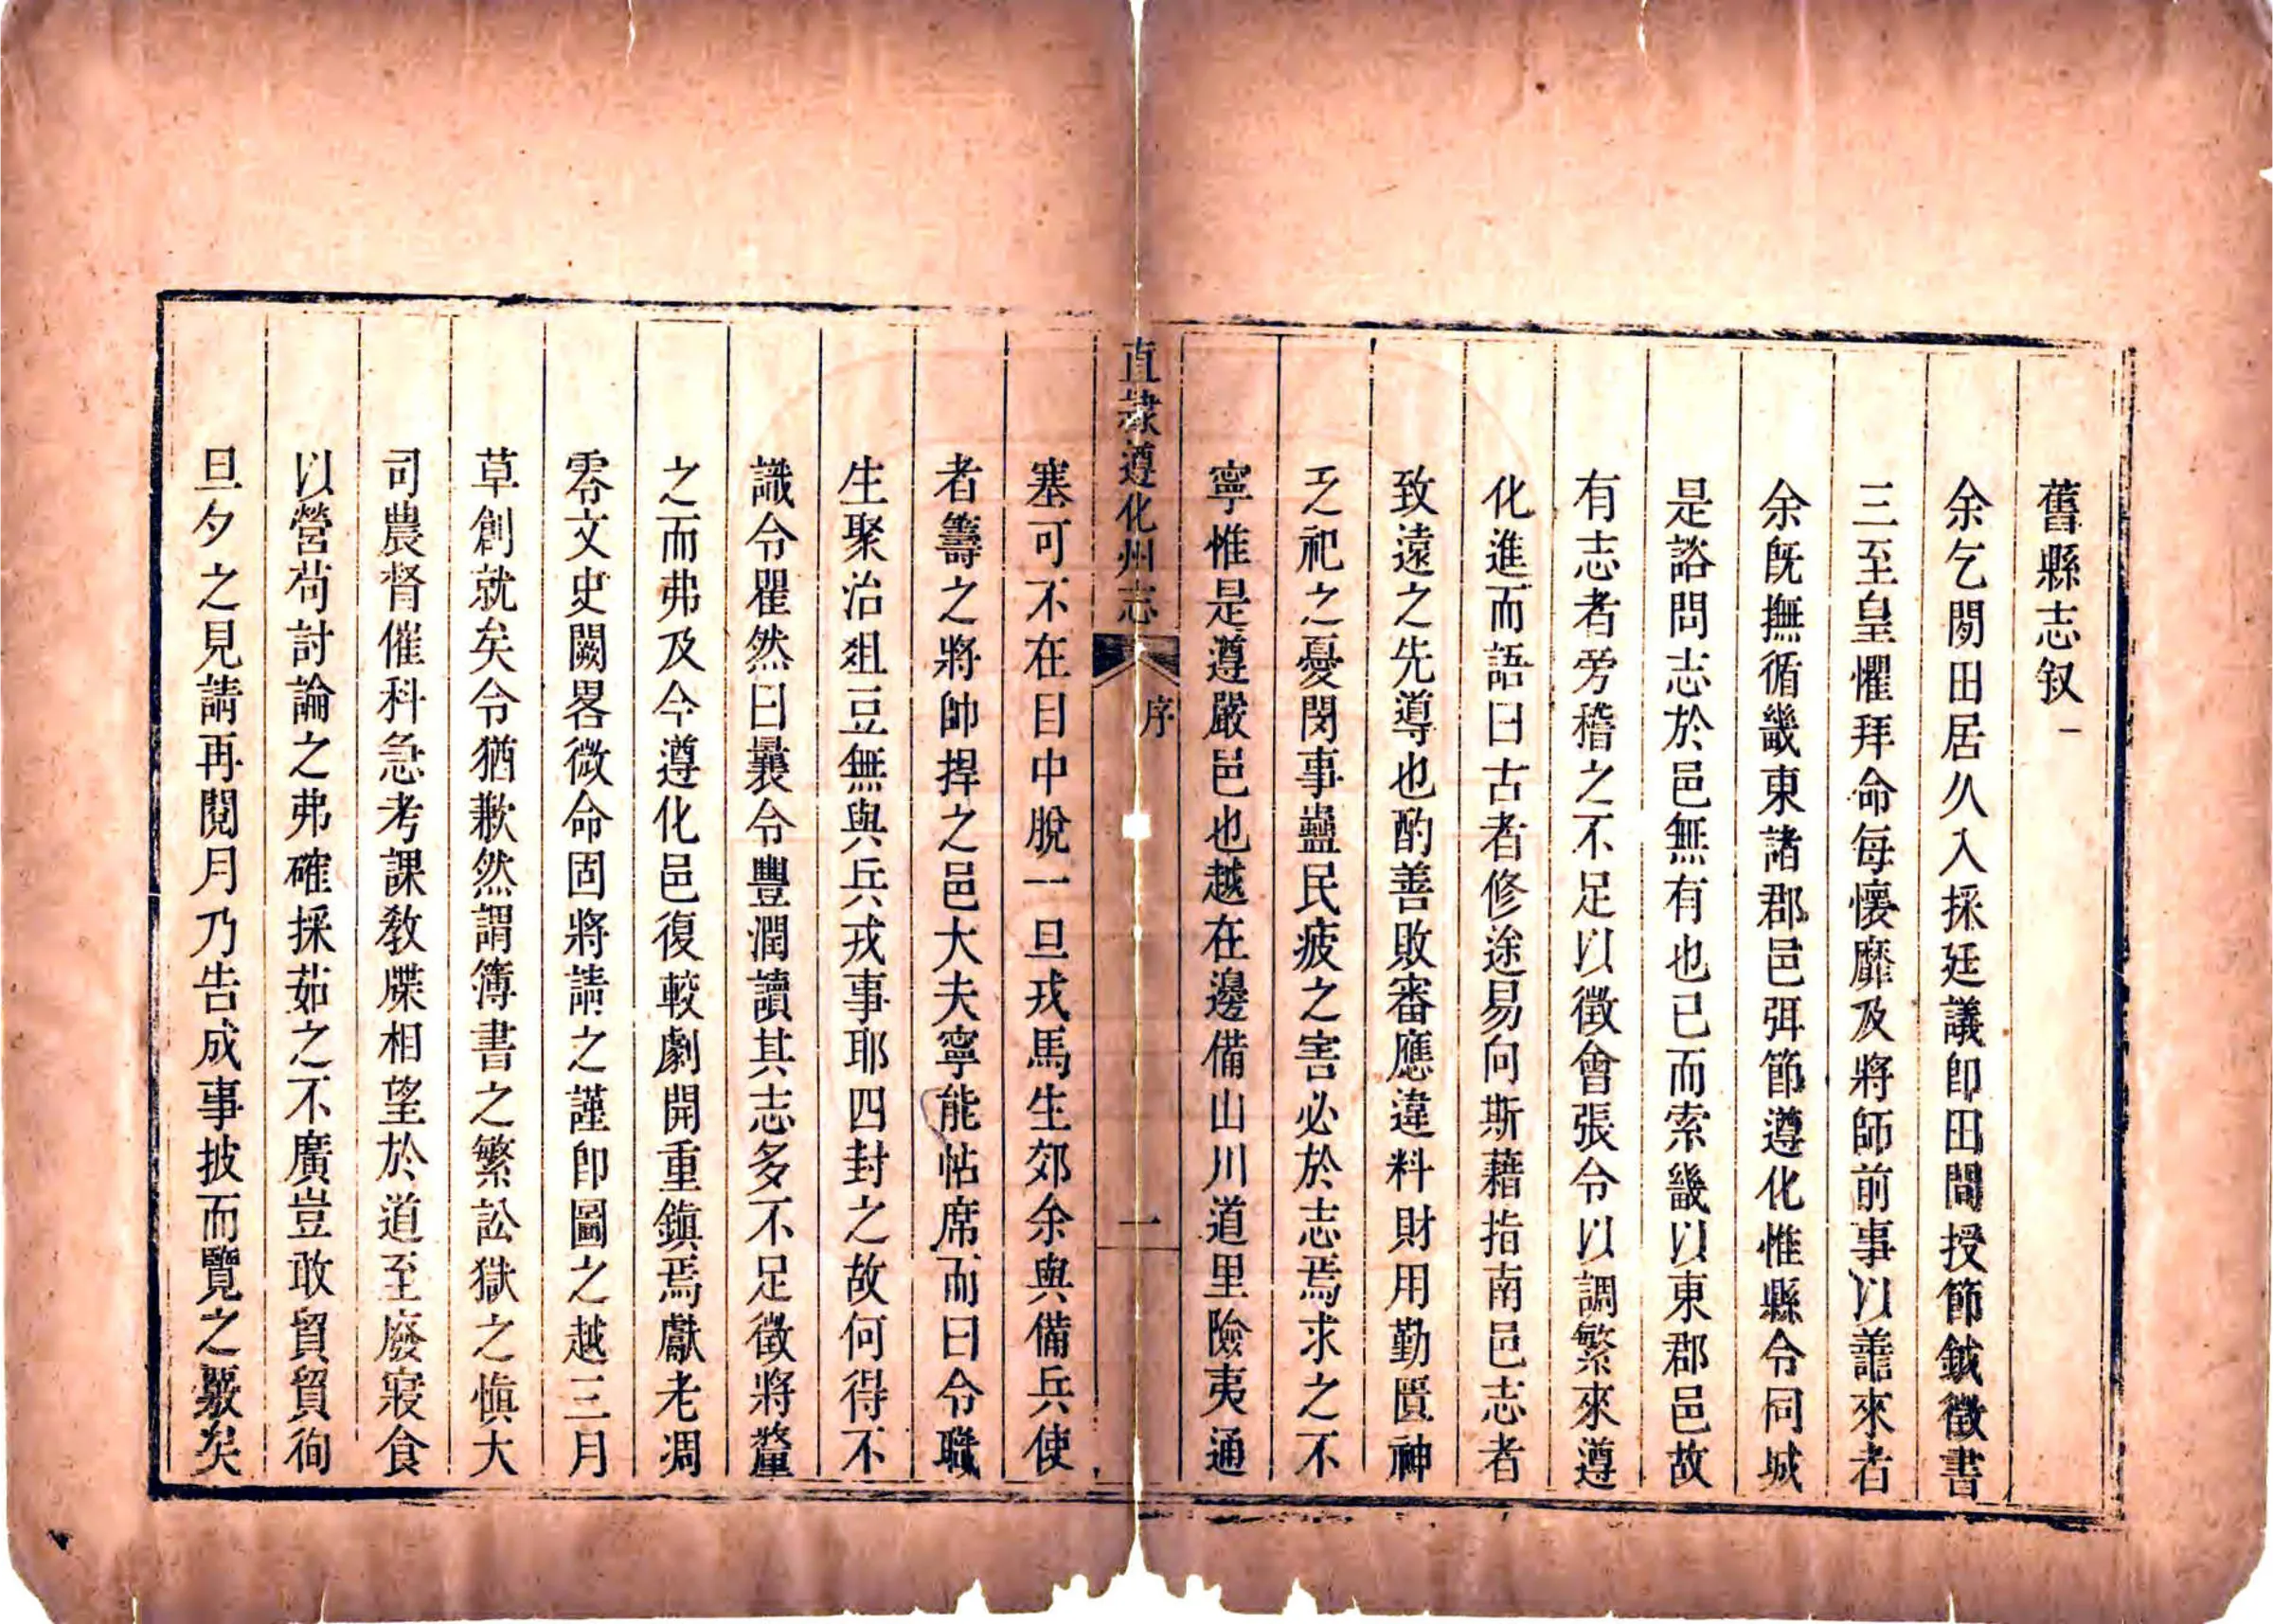 舊縣志叙一
余乞閒田居久入採廷議卽田間授節鉞徵書
三至皇懼拜命每懷靡及將師前事以善來者
余旣撫循畿東諸郡邑弭節遵化惟縣令同城
是諮問志於邑無有也已而索畿以東郡邑故
有志者旁稽之不足以徵會張令以調繁來遵
化進而語曰古者修途易向斯藉指南邑志者
致遠之先導也酌善敗審應違料財用勤匱神
乏祀之憂閔事蠱民疲之害必於志焉求之不
寧惟是遵嚴邑也越在邊備山川道里險夷通
直隸遵化州志
序
一
塞可不在目中脫一旦戎馬生郊余與備兵使
者籌之將帥捍之邑大夫寧能帖席而曰令職
生聚治俎豆無與兵戎事耶四封之故何得不
識令瞿然曰曩令豐潤讀其志多不足徵將釐
之而弗及今遵化邑復較劇開重鎮焉獻老凋
零文史闕畧微命固將請之謹卽圖之越三月
草創就矣令猶歉然謂簿書之繁訟獄之愼大
司農督催科急考課敎牒相望於道至廢寢食
以營苟討論之弗確採茹之不廣豈敢貿貿徇
旦夕之見請再閱月乃告成事披而覽之覈矣